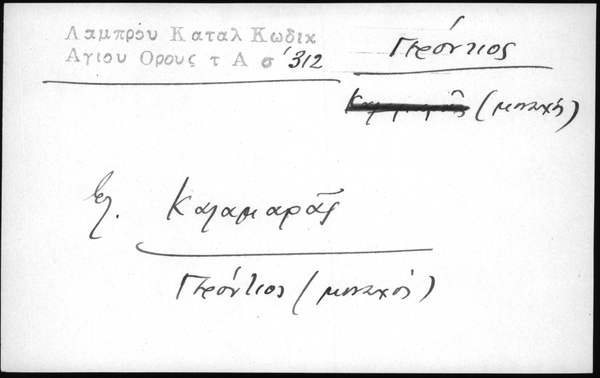 Λαμπρου Καταλ Κωδικ
Αγιου Ορους τ Α σ 312
Γερόντιος
(μοναχός)
Καλαμαρᾶς
Γερόντιος (μοναχός)